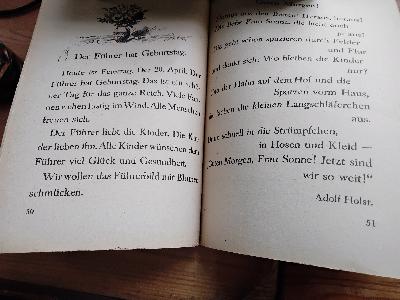 Der Führer hat Geburtstag.
Heute ist Feiertag. Der 20. April. Der
Führer hat Geburtstag. Das ist ein schö-
ner Tag für das ganze Reich. Viele Fah-
nen wehen lustig im Wind. Alle Menschen
freuen sich.
Der Führer liebt die Kinder. Die Kin-
der lieben ihn. Alle Kinder wünschen dem
Führer viel Glück und Gesundheit.
Wir wollen das Führerbild mit Blumen
schmücken.
50
Morgen!
aus den Betten! Heraus, heraus!
Die liebe Frau Sonne, die lacht euch
ja aus!
geht schon spazieren durch Felder
und Flur
und denkt sich: Wo bleiben die Kinder
nur?
der Hahn auf dem Hof und die
Spatzen vorm Haus,
lachen die kleinen Langschläferchen
aus.
schnell in die Strümpfchen,
in Hosen und Kleid —
„Guten Morgen, Frau Sonne! Jetzt sind
wir so weit!“
Adolf Holst.
51